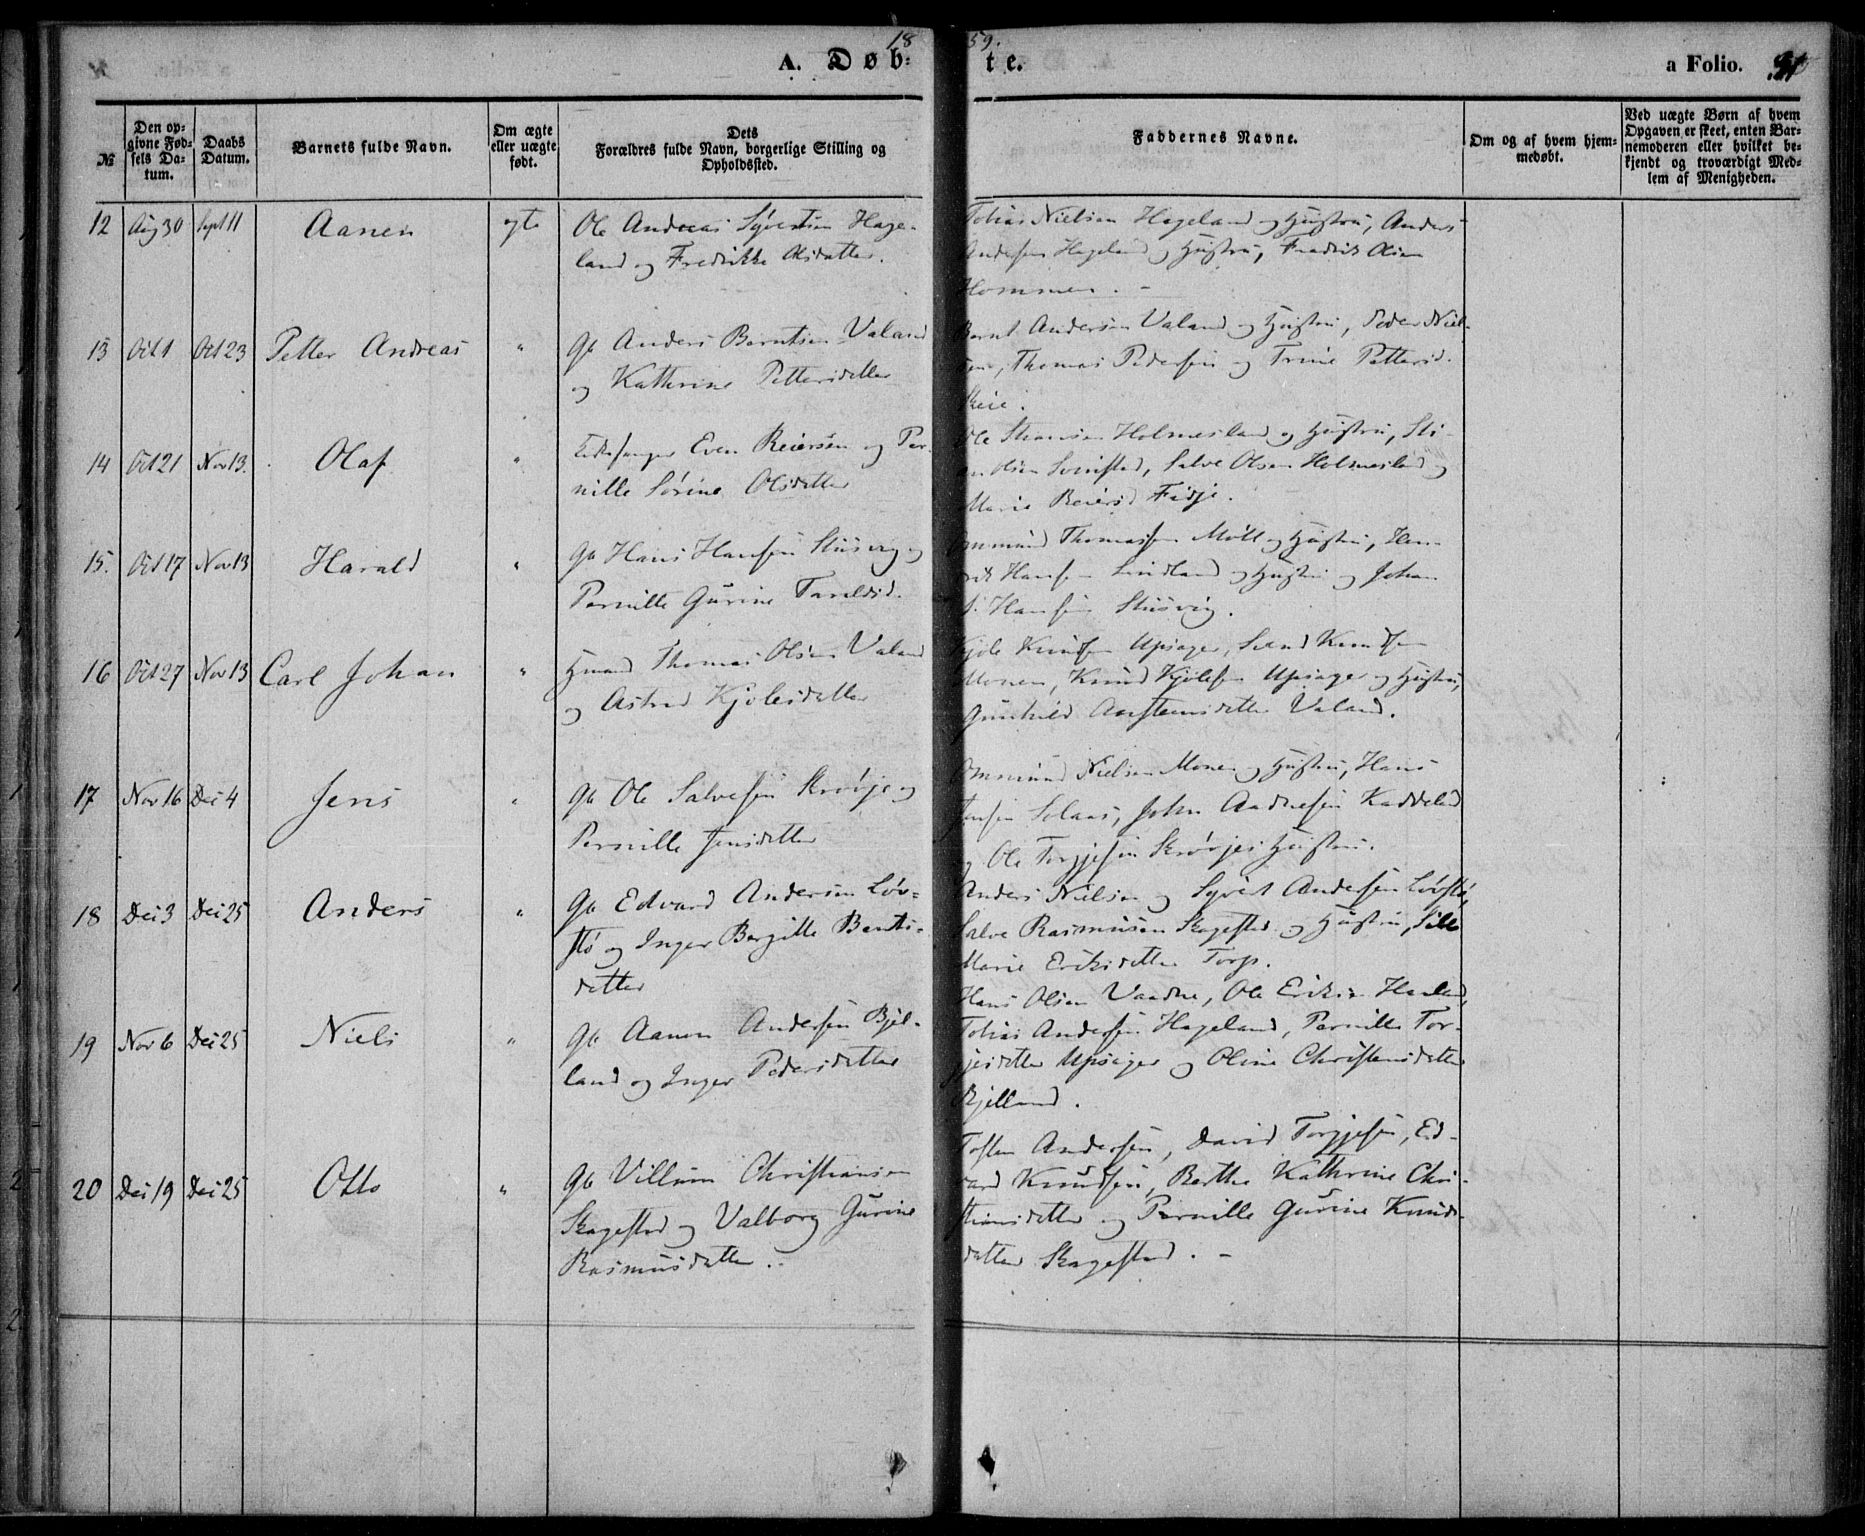 1859.
A. Døbte.
a Folio.
№
Den opgivne Fødsels Datum.
Daabs Datum.
Barnets fulde Navn.
Om ægte eller uægte født.
Dets Forældres fulde Navn, borgerlige Stilling og Opholdssted.
Faddernes Navne.
Om og af hvem hjemmedøbt.
Ved uægte Børn af hvem Opgaven er skeet, enten Barnemoderen eller hvilket bekjendt og troværdigt Medlem af Menigheden.
12 Aug 30 Sept 11 Aanen ægte
Ole Andreas Syvertsen Hage-
land og Fredrikke Olsdatter.
Tobias Nielsen Hageland og Hustru, Anders
Andersen Hageland og Hustru, Fredrik Olsen
Hommen. -
13 Oct 1 Oct 23 Petter Andreas "
Gb Anders Berntsen Valand
og Kathrine Pettersdatter
Bernt Andersen Valand og Hustru, Peder Niel-
sen, Thomas Pedersen og Trine Pettersd.
Skeie.
14 Oct 21 Nov 13. Olaf "
Even Reiersen og Per-
nille Sørine Olsdatter
Ole Holmesland og Hustru,
Olsen Salve Olsen Holmesland og
Marie Reiersd Fidje.
15. Oct 17 Nov 13 Harald "
Gb Hans Hansen Stusvig og
Pernille Gurine Taraldsd.
Ommund Thomassen Møll og Hustru, Hen-
rik Hansen Lindland og Hustru og Johan
Hansen Stusvig.
16 Oct 27 Nov 13 Carl Johan "
Hmand Thomas Olsen Valand
og Astrid Kjølesdatter
Kjøle Knudsen Upsager, Svend Knudsen
Monen, Knud Kjølesen Upsager og Hustru,
Gunhild Aanstensdatter Valand.
17 Nov 16 Dec 4 Jens "
Gb Ole Salvesen Skrøvje og
Pernille Jensdatter
Ommund Nielsen Monen og Hustru, Hans
Jensen Solaas, John Aadnesen Kaddeland
og Ole Torgjesen Skrøvjes Hustru.
18 Dec 3 Dec 25 Anders "
Gb Edvard Andersen Løv-
stø og Inger Bergitte Bentsdatter
Anders Nielsen og Syvert Andersen Løvstø,
Salve Rasmussen Skagestad og Hustru, Sille
Marie Eriksdatter Torp.
19 Nov 6 Dec 25 Niels "
Gb Aanen Andersen Bjel-
land og Inger Pedersdatter
Hans Olsen Vaadne, Ole Eriksen
Tobias Andersen Hageland, Pernille Tor-
gjesdatter Upsager og Oline Christensdatter
Bjelland.
20 Dec 19 Dec 25 Otto "
Gb Villum Christiansen
Skagestad og Valborg Gurine
Rasmusdatter.
Tosten Andersen, David Torgjesen, Ed-
vard Knudsen, Berthe Kathrine Chri-
stiansdatter og Pernille Gurine Knuds-
datter Skagestad. -